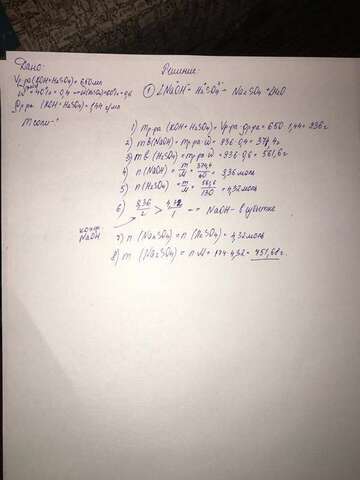 Дано:
Решение:
Vр-ра (KOH + H₂SO₄) = 650мл
ω = 40% = 0,4
ρр-ра (KOH + H₂SO₄) = 1,44 г/мл
m соли - ?
① 2NaOH + H₂SO₄ → Na₂SO₄ + 2H₂O
1) mр-ра (KOH + H₂SO₄) = Vр-ра · ρр-ра = 650 · 1,44 = 936 г
2) mв (NaOH) = mр-ра · ω = 936 · 0,4 = 374,4г
3) mв (H₂SO₄) = mр-ра · ω = 936 · 0,6 = 561,6 г
4) n (NaOH) = m/M = 374,4/40 = 9,36 моль
5) n (H₂SO₄) = m/M = 4,32 моль
6) 9,36/2 > 4,32/1 → NaOH - в избытке
NaOH
7) n (Na₂SO₄) = n (H₂SO₄) = 4,32 моль
8) m (Na₂SO₄) = n · M = 174 · 4,32 = 751,68 г.